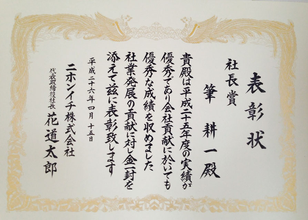 表彰状
社長賞
筆耕一殿
貴殿は平成二十五年度の実績が
優秀であり会社貢献に於いても
優秀な成績を収めました
社業発展の貢献に対し金一封を
添えて茲に表彰致します
平成二十六年四月十五日
ニホンイチ株式会社
代表取締役社長 花道太郎